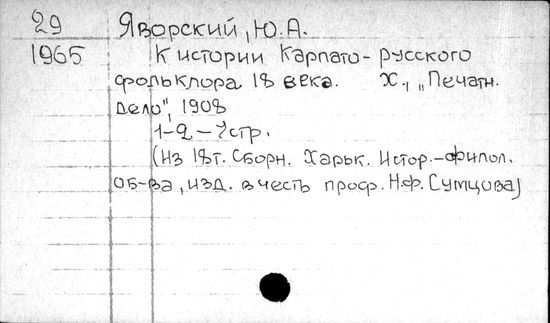 29 Яворский, Ю.А.
1965 К истории Карпато-русского
фольклора 18 века. Х., „Печатн.
дело", 1908
1-2-7стр.
(Из 18т. Сборн. Харьк. Истор.-филол.
об-ва, изд. в честь проф. Н.Ф. Сумцова)